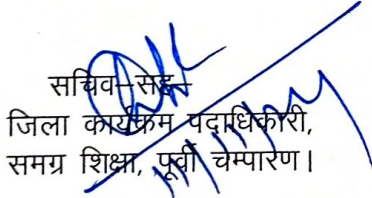 सचिव–सह–
जिला कार्यक्रम पदाधिकारी,
समग्र शिक्षा, पूर्वी चम्पारण।